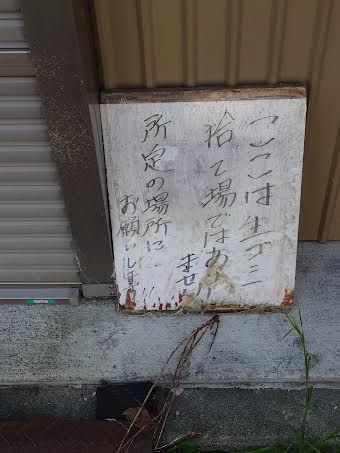 ここは生ゴミ
拾て場ではあり
ません
所定の場所に
お願いします